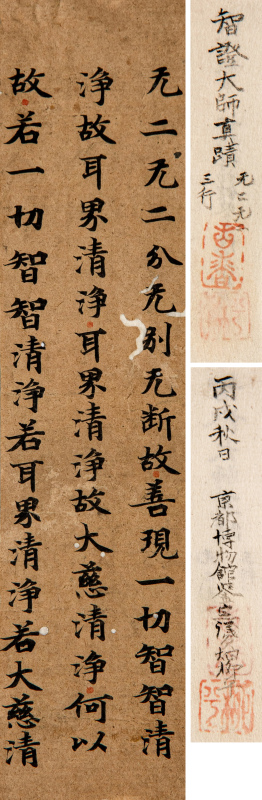 无二无二分无别无断故善現一切智智清
淨故耳界清淨耳界清淨故大慈清淨何以
故若一切智智清淨若耳界清淨若大慈清
智證大師真蹟
无二无
三行
丙戌秋日
京都博物館鑒